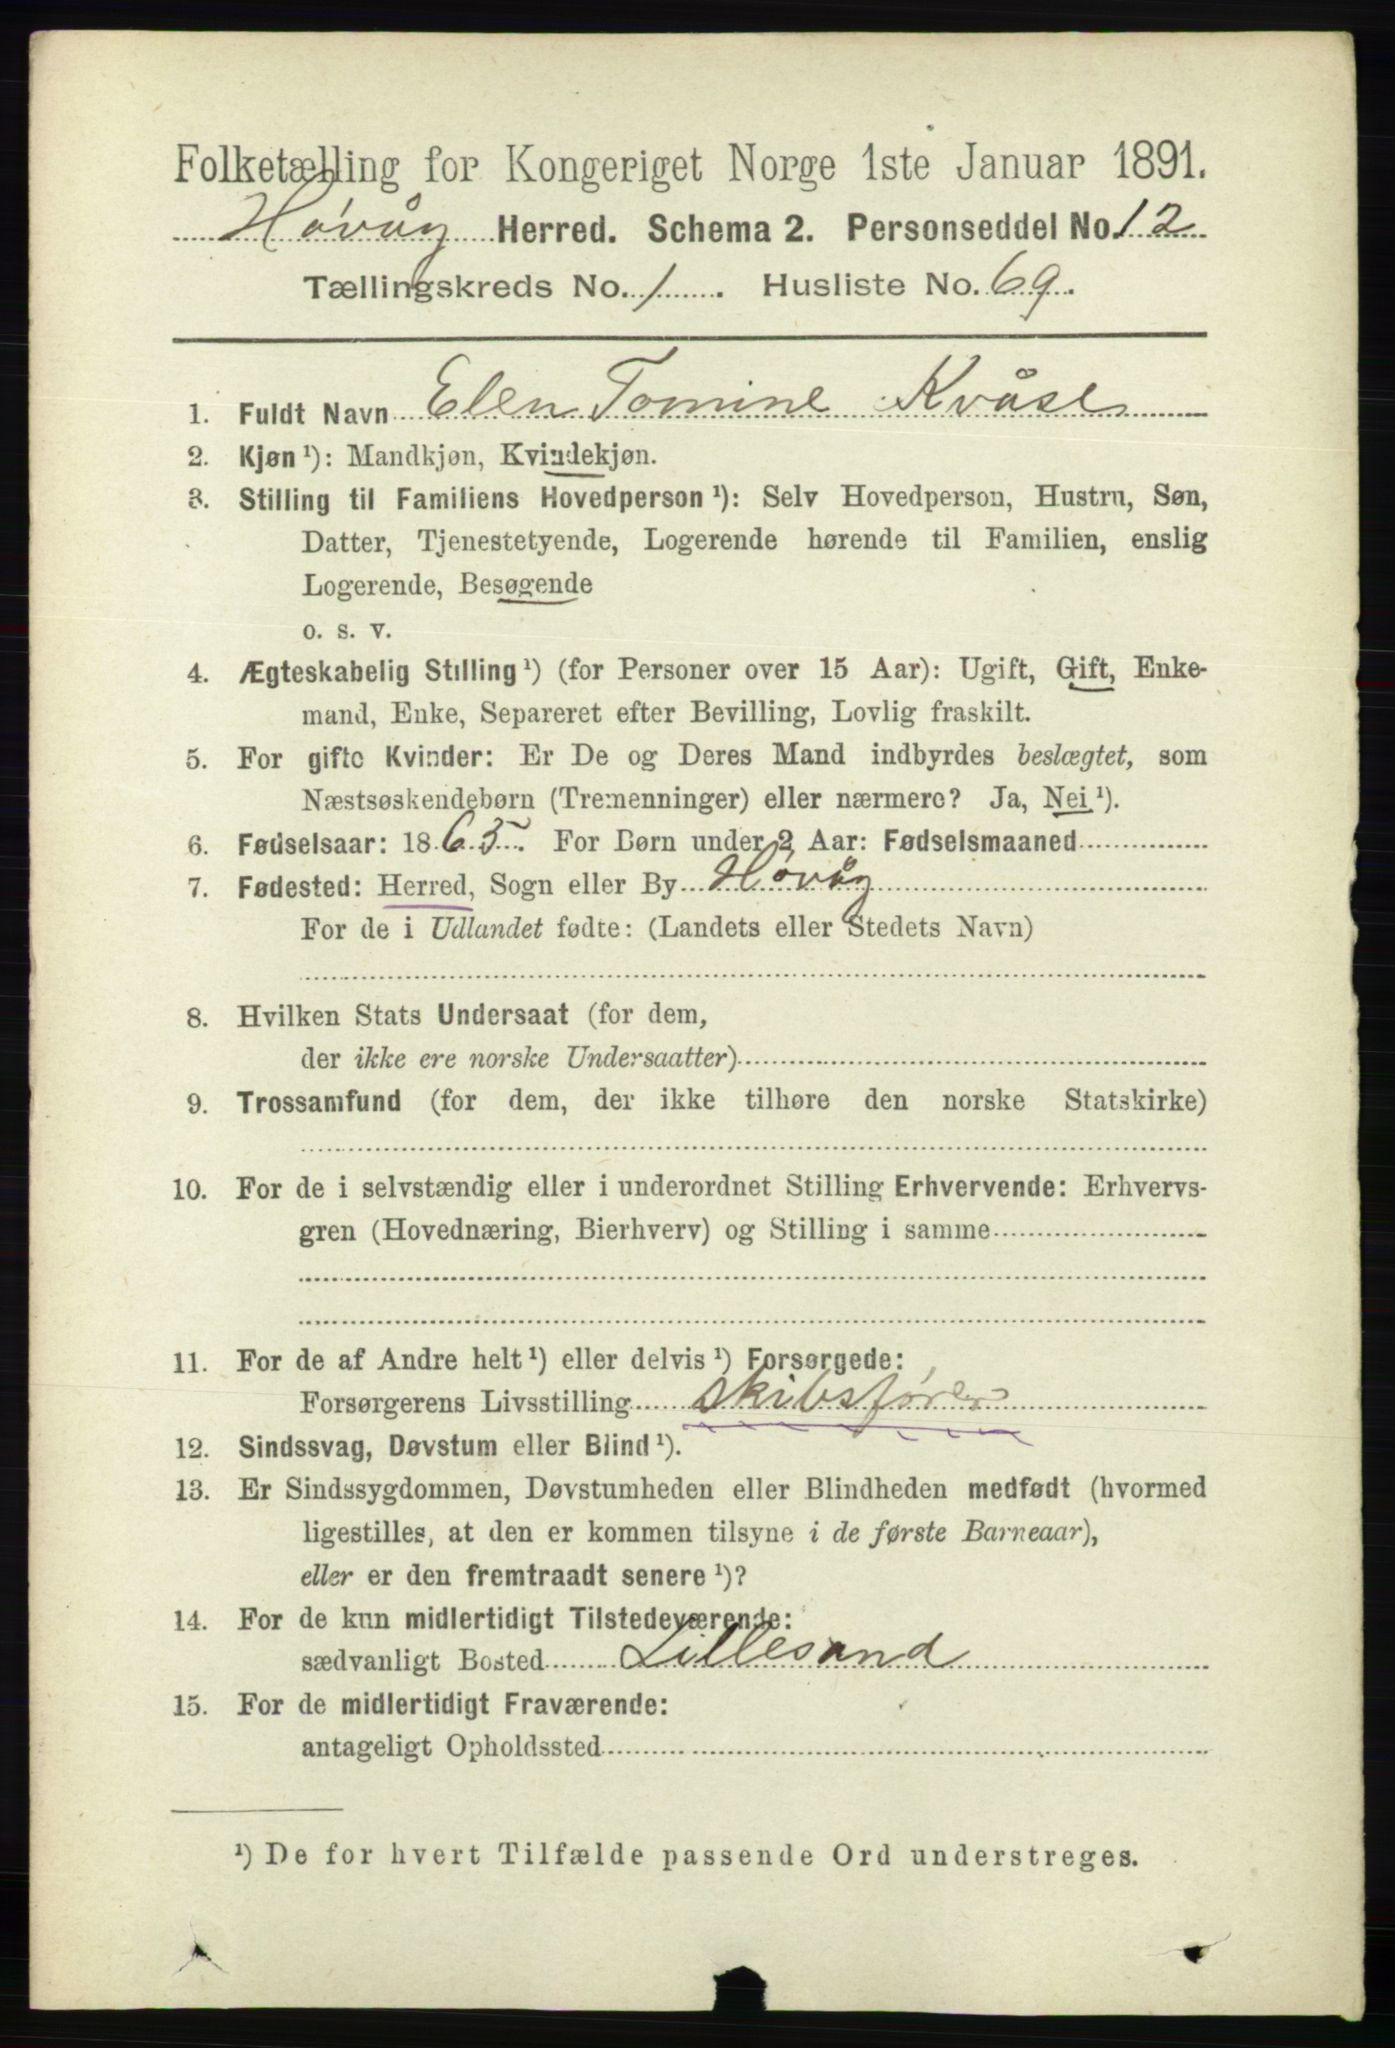 Folketælling for Kongeriget Norge 1ste Januar 1891.
Høvåg Herred. Schema 2. Personseddel No. 12
Tællingskreds No. 1. Husliste No. 69.
1. Fuldt Navn Elen Tomine Kvåse
2. Kjøn ¹): Mandkjøn, Kvindekjøn.
3. Stilling til Familiens Hovedperson ¹): Selv Hovedperson, Hustru, Søn,
Datter, Tjenestetyende, Logerende hørende til Familien, enslig
Logerende, Besøgende
o. s. v.
4. Ægteskabelig Stilling ¹) (for Personer over 15 Aar): Ugift, Gift, Enke-
mand, Enke, Separeret efter Bevilling, Lovlig fraskilt.
5. For gifte Kvinder: Er De og Deres Mand indbyrdes beslægtet, som
Næstsøskendebørn (Tremenninger) eller nærmere? Ja, Nei ¹).
6. Fødselsaar: 1865. For Børn under 2 Aar: Fødselsmaaned
7. Fødested: Herred, Sogn eller By Høvåg
For de i Udlandet fødte: (Landets eller Stedets Navn)
8. Hvilken Stats Undersaat (for dem,
der ikke ere norske Undersaatter)
9. Trossamfund (for dem, der ikke tilhøre den norske Statskirke)
10. For de i selvstændig eller i underordnet Stilling Erhvervende: Erhvervs-
gren (Hovednæring, Bierhverv) og Stilling i samme
11. For de af Andre helt ¹) eller delvis ¹) Forsørgede:
Forsørgerens Livsstilling skibsfører
12. Sindssvag, Døvstum eller Blind ¹).
13. Er Sindssygdommen, Døvstumheden eller Blindheden medfødt (hvormed
ligestilles, at den er kommen tilsyne i de første Barneaar),
eller er den fremtraadt senere ¹)?
14. For de kun midlertidigt Tilstedeværende:
sædvanligt Bosted Lillesand
15. For de midlertidigt Fraværende:
antageligt Opholdssted
¹) De for hvert Tilfælde passende Ord understreges.